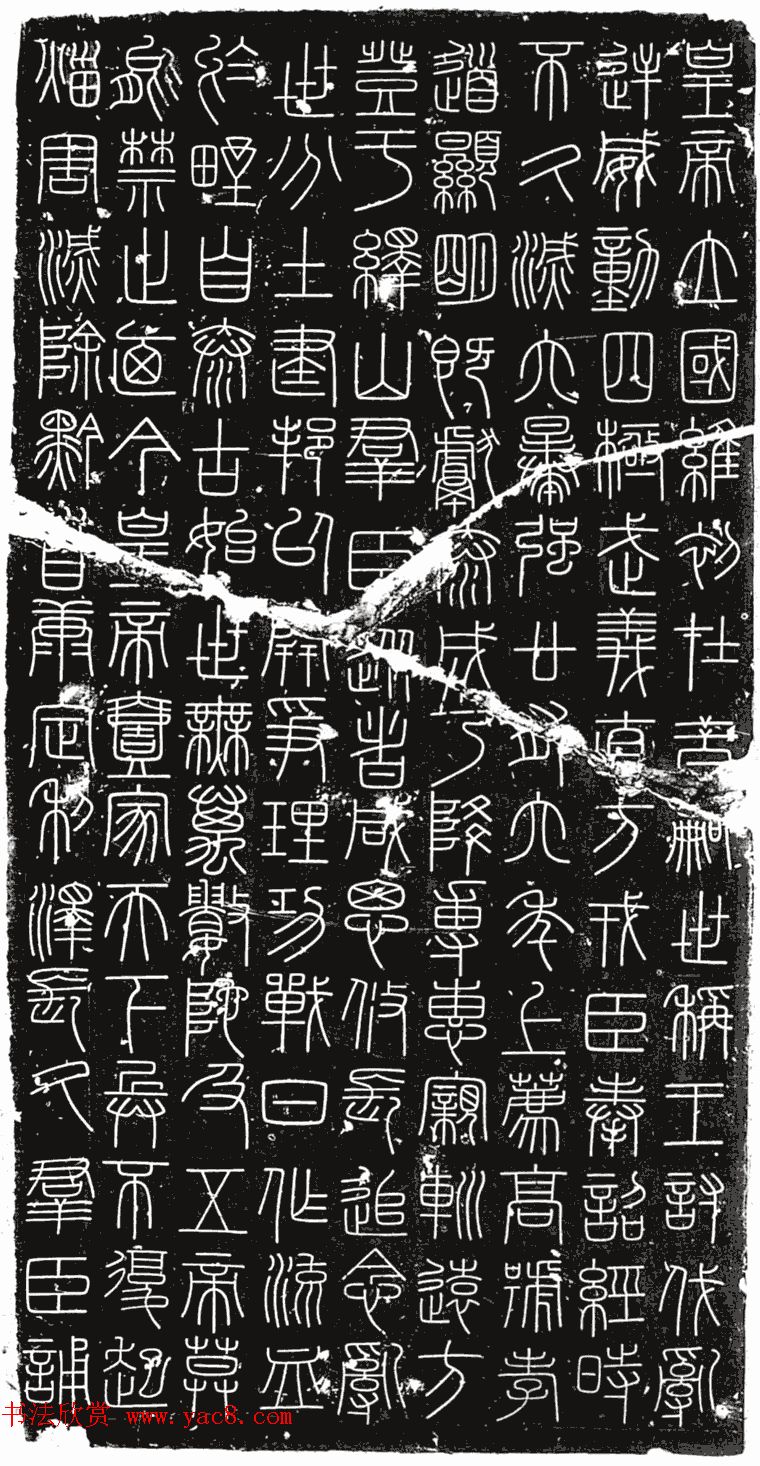 皇帝立國維初在昔嗣世稱王討伐亂
逆威動四極武義直方戎臣奉詔經時
不久滅六暴强廿有六年上薦高號孝
道顯明既獻泰成乃降尃惠寴巡遠方
登于繹山羣臣從者咸思攸長追念亂
世分土建邦以開爭理功戰日作流血
於野自泰古始世無萬數陀及五帝莫
能禁止廼今皇帝壹家天下兵不復起
烖害滅除黔首康定利澤長久羣臣誦
书法欣赏 www.yac8.com